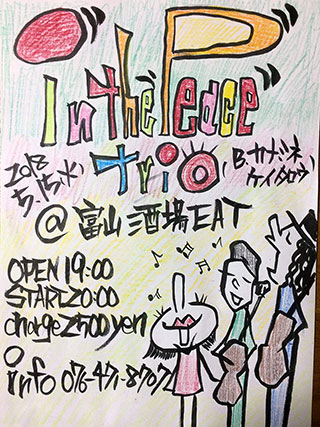 "P"
In the "Peace"
trio
2013
5.15(水)
(B.カナミネ
ケイタロウ)
@富山酒場EAT
OPEN 19:00
START20:00
charge 2500 yen
info 076-471-8707